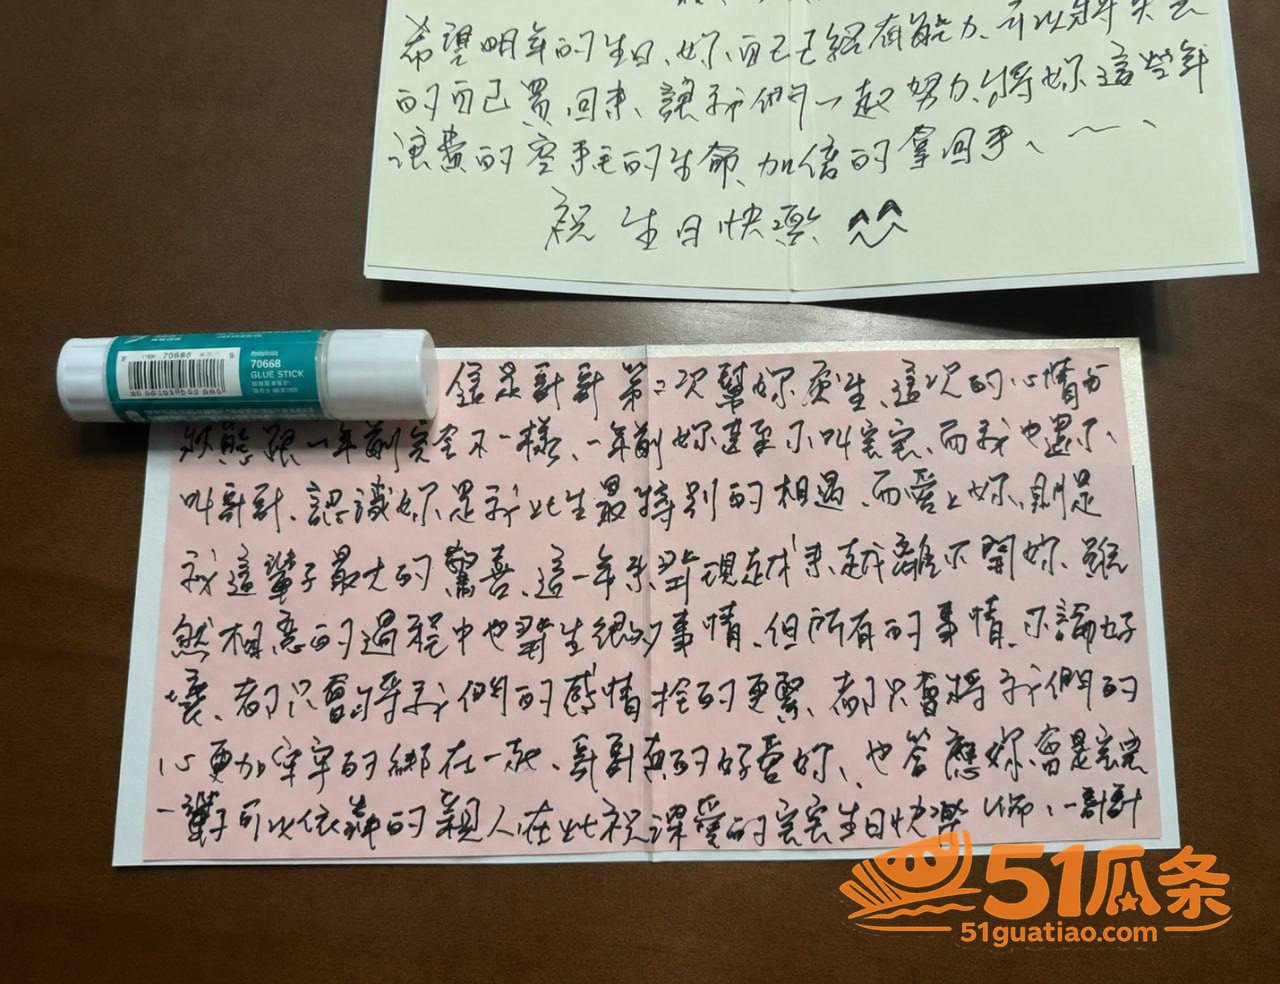 希望明年的生日、妳自己已經有能力、可以將失去
的自己買回來、讓我們一起努力、將妳這些年
浪費的空耗的生命、加倍的拿回來、~、
祝 生日快樂 ^^
70668
70668
GLUE STICK
這是哥哥第二次幫妳慶生、這次的心情與
狀態跟一年前完全不一樣、一年前妳甚至不叫宝宝、而我也還不
叫哥哥、認識妳是我此生最特別的相遇、而愛上妳、則是
我這輩子最大的驚喜、這一年來發現越來越離不開妳、雖
然相戀的過程中也發生很多事情、但所有的事情、不論好
壞、都只會將我們的感情拴的更緊、都只會將我們的
心更加牢牢的綁在一起、哥哥真的好愛妳、也答應妳會是宝宝
一輩子可以依靠的親人在此祝深愛的宝宝生日快樂
51瓜条
51guatiao.com